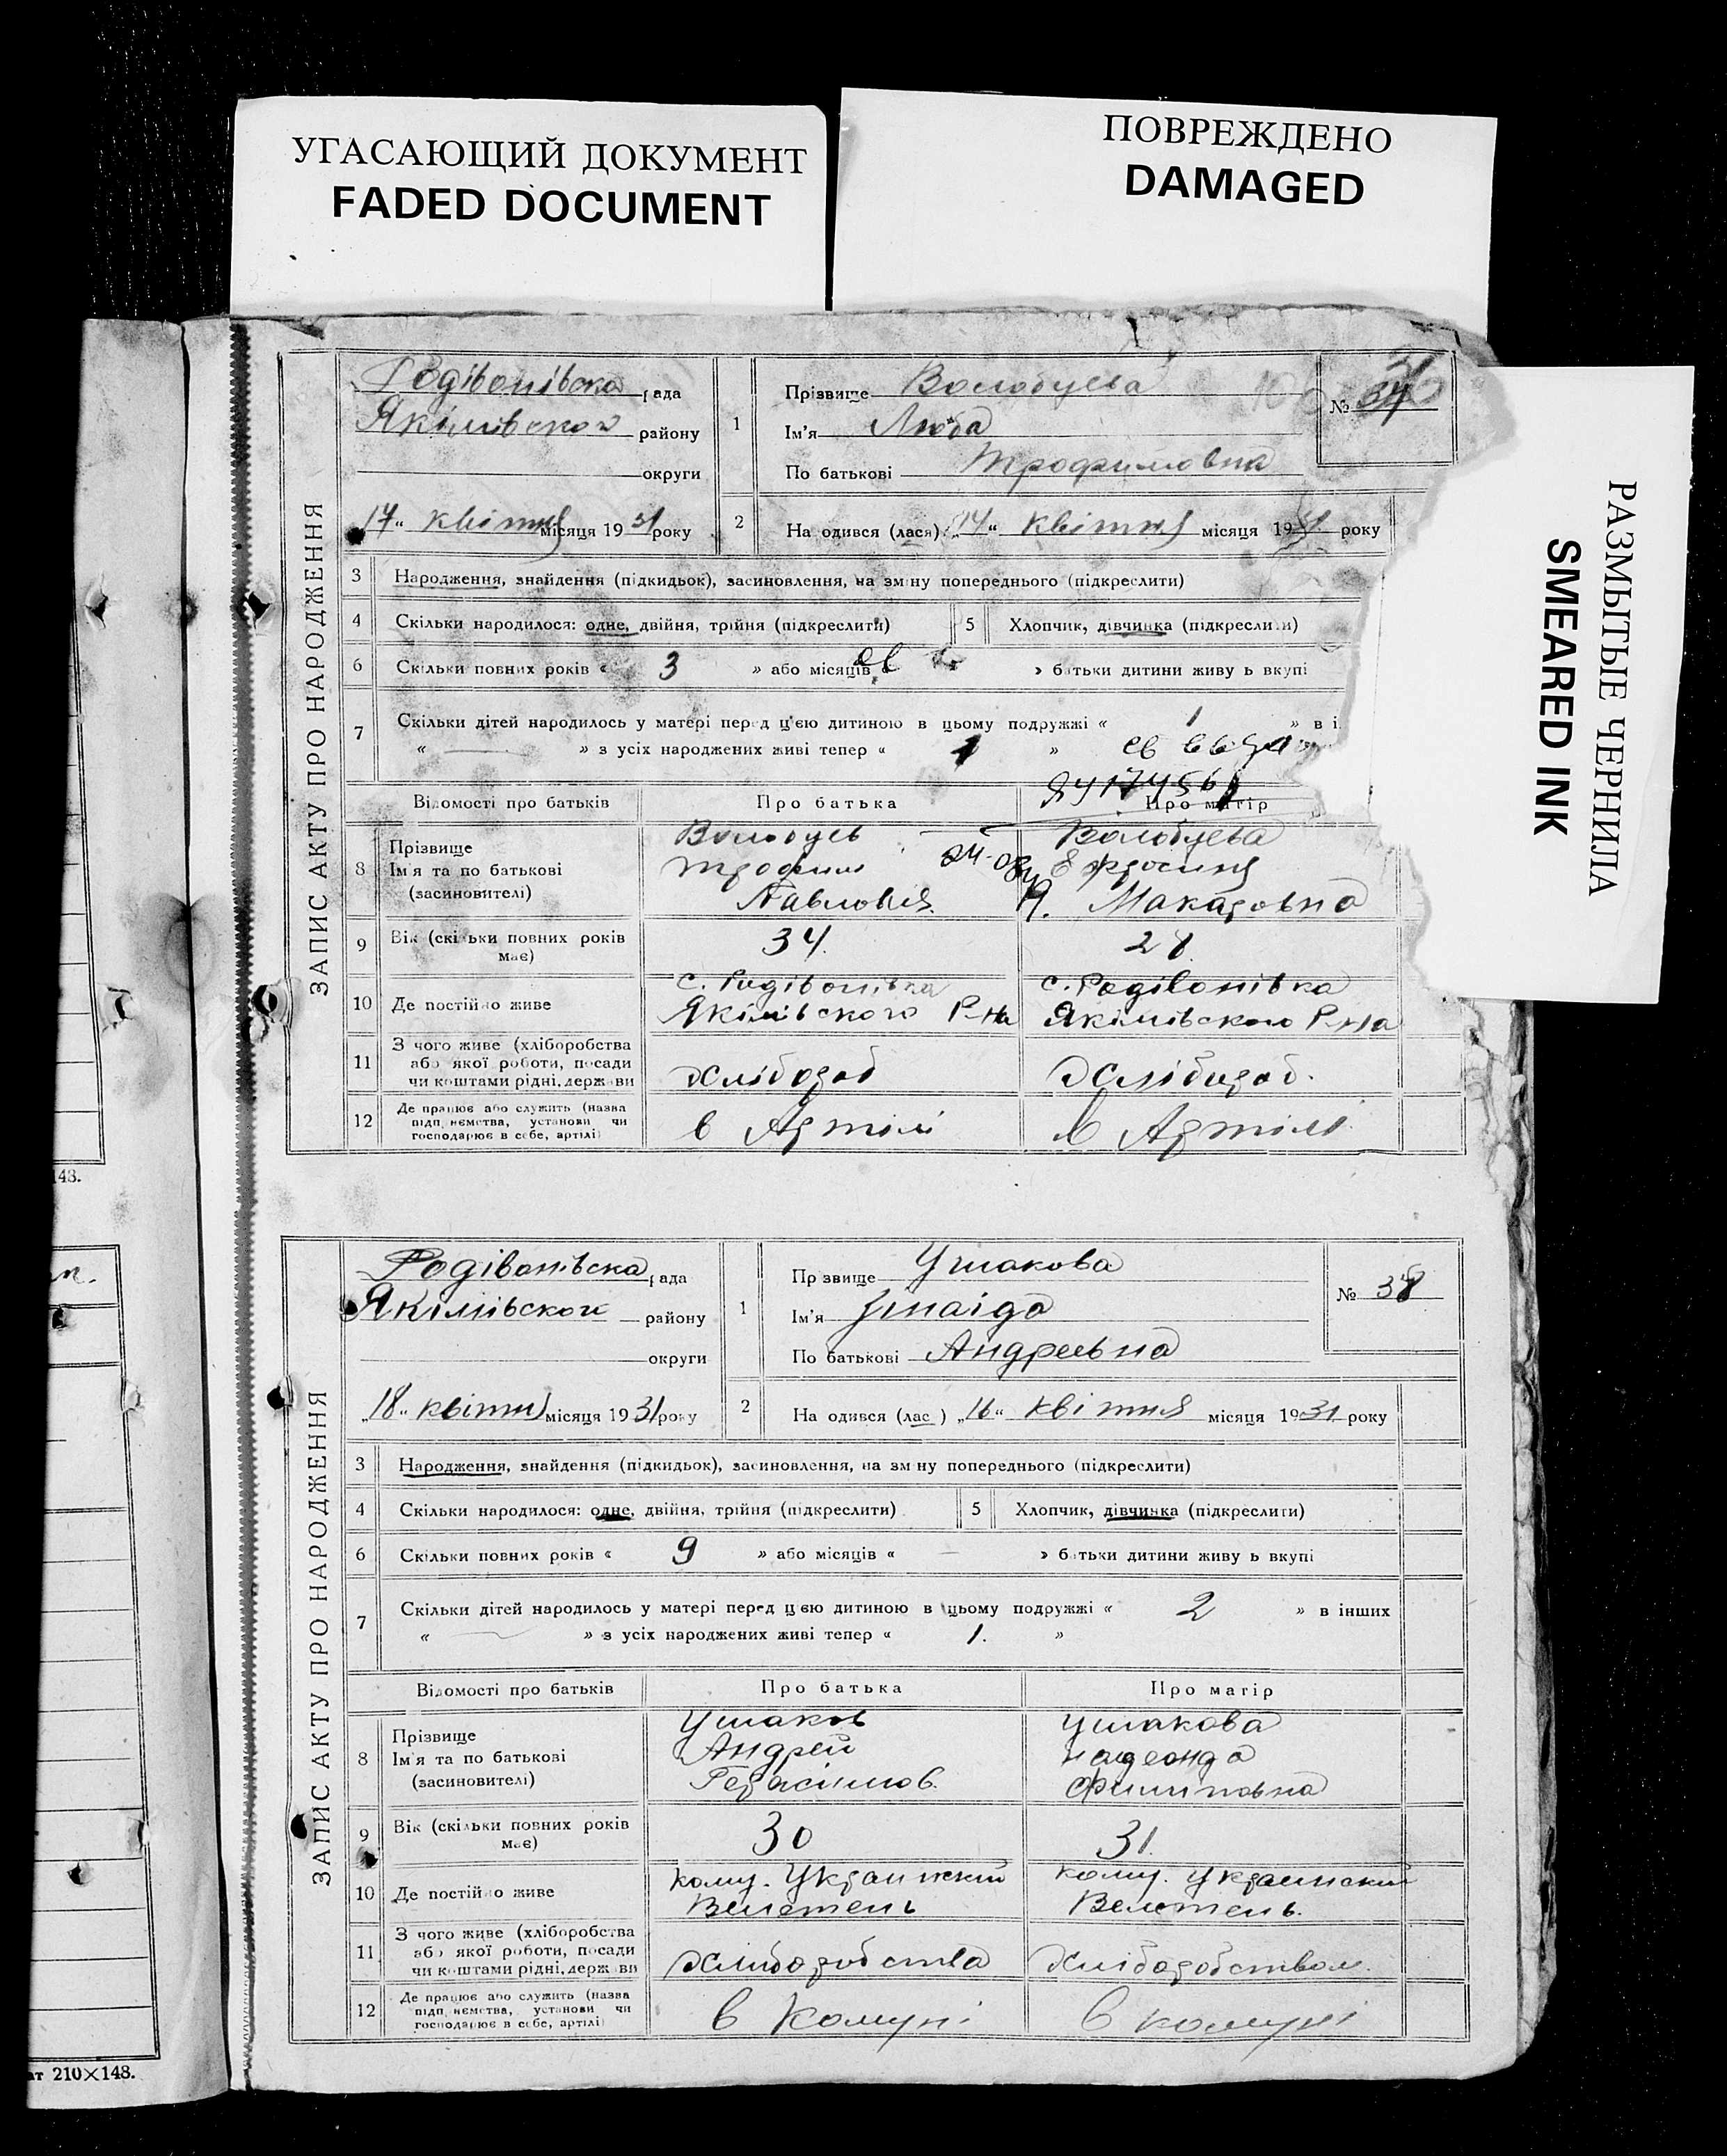 УГАСАЮЩИЙ ДОКУМЕНТ
FADED DOCUMENT
ПОВРЕЖДЕНО
DAMAGED
РАЗМЫТЫЕ ЧЕРНИЛА
SMEARED INK
ЗАПИС АКТУ ПРО НАРОДЖЕННЯ
Родівонівска рада
Якімівского району
округи
17 квітня місяця 1931 року
1 Прізвище Волобуева
Ім'я Люба
По батькові Трофимовна
№
2 На одився (лася) „14“ квітня місяця 1931 року
3 Народження, знайдення (підкидьок), засиновлення, на зміну попереднього (підкреслити)
4 Скільки народилося: одне, двійня, трійня (підкреслити) 5 Хлопчик, дівчинка (підкреслити)
6 Скільки повних років « 3 » або місяців « » батьки дитини живу ь вкупі
7 Скільки дітей народилось у матері перед ц'єю дитиною в цьому подружжі « 1 » в і
« — » з усіх народжених живі тепер « 1 »
Відомості про батьків Про батька Про матір
8 Прізвище Волобуев Волобуева
Ім'я та по батькові Трофим Ефросиня
(засновителі) Павлович Макаровна
9 Вік (скільки повних років має) 34. 28.
10 Де постійно живе с. Родівонівка с. Родівонівка
Якімівского Р-на Якімівского Р-на
11 З чого живе (хліборобства
або якої роботи, посади
чи коштами рідні, держави Хлібороб Хлібороб.
12 Де працює або служить (назва
підп иємства, установи чи
господарює в себе, артілі) в Артілі в Артілі
143.
ЗАПИС АКТУ ПРО НАРОДЖЕННЯ
Родівонівска рада
Якімівского району
округи
„18“ квітня місяця 1931 року
1 Пр звище Ушакова
Ім'я Зінаіда
По батькові Андреевна
№ 38
2 На одився (лас ) „16“ квітня місяця 1931 року
3 Народження, знайдення (підкидьок), засиновлення, на зміну попереднього (підкреслити)
4 Скільки народилося: одне, двійня, трійня (підкреслити) 5 Хлопчик, дівчинка (підкреслити)
6 Скільки повних років « 9 » або місяців « — » батьки дитини живу ь вкупі
7 Скільки дітей народилось у матері перед цією дитиною в цьому подружжі « 2 » в інших
« — » з усіх народжених живі тепер « 1. »
Відомості про батьків Про батька Про матір
8 Прізвище Ушаков Ушакова
Ім'я та по батькові Андрей
(засиновителі) Герасимов. Филиповна
9 Вік (скільки повних років має) 30 31.
10 Де постійно живе кому. Украинский кому. Украинский
Велетень Велетень.
11 З чого живе (хліборобства
або якої роботи, посади
чи коштами рідні, держави Хліборобства Хліборобством.
12 Де працює або служить (назва
підп иємства, установи чи
господарює в себе, артілі) в Комуні в комуні
ат 210×148.